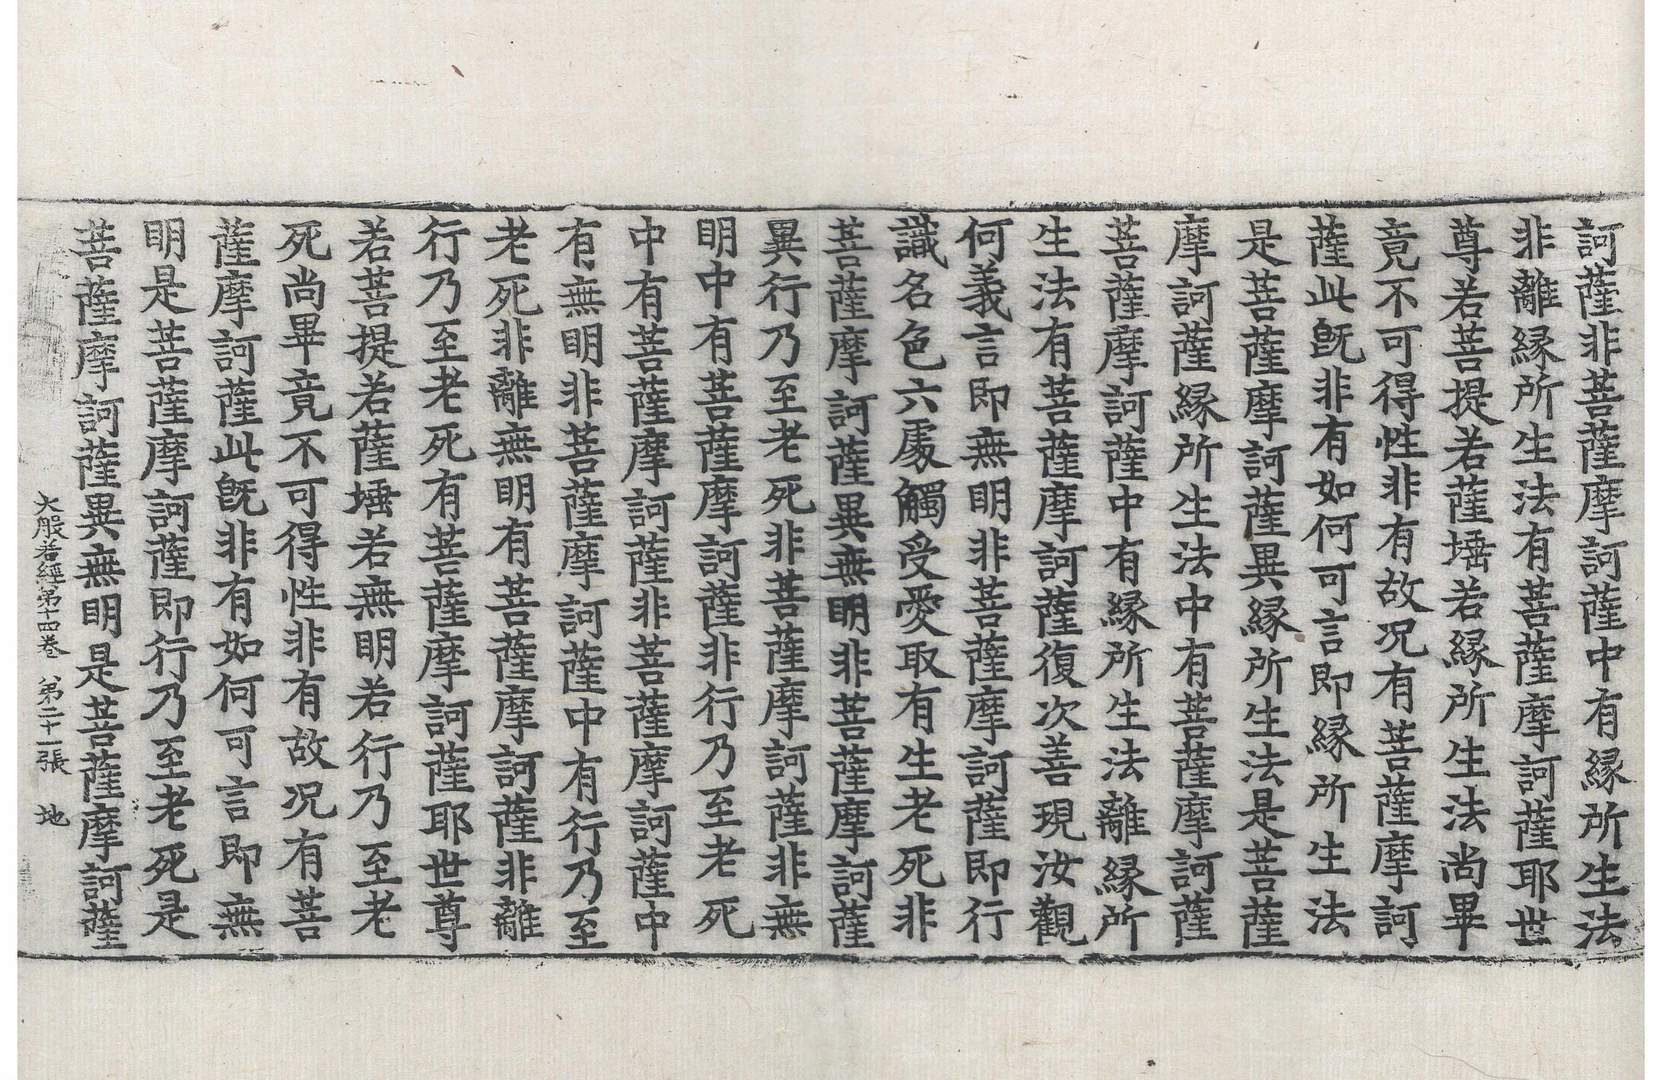 訶薩非菩薩摩訶薩中有縁所生法
非離縁所生法有菩薩摩訶薩耶世
尊若菩提若薩埵若縁所生法尚畢
竟不可得性非有故况有菩薩摩訶
薩此旣非有如何可言即縁所生法
是菩薩摩訶薩異縁所生法是菩薩
摩訶薩縁所生法中有菩薩摩訶薩
菩薩摩訶薩中有縁所生法離縁所
生法有菩薩摩訶薩復次善現汝觀
何義言即無明非菩薩摩訶薩即行
識名色六處觸受愛取有生老死非
菩薩摩訶薩異無明非菩薩摩訶薩
異行乃至老死非菩薩摩訶薩非無
明中有菩薩摩訶薩非行乃至老死
中有菩薩摩訶薩非菩薩摩訶薩中
有無明非菩薩摩訶薩中有行乃至
老死非離無明有菩薩摩訶薩非離
行乃至老死有菩薩摩訶薩耶世尊
若菩提若薩埵若無明若行乃至老
死尚畢竟不可得性非有故况有菩
薩摩訶薩此旣非有如何可言即無
明是菩薩摩訶薩即行乃至老死是
菩薩摩訶薩異無明是菩薩摩訶薩
大般若經第十四卷 第二十一張 地